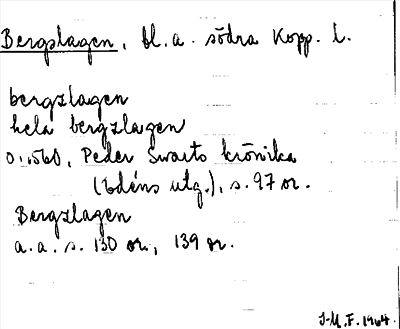 Bergslagen, bl.a. södra Kopp. l.
bergzlagen
hela bergzlagen
o. 1560, Peder Swarts krönika
(Edéns utg.), s. 97 or.
Bergzlagen
a.a. s. 130 or., 139 or.
J-M.F. 1964.